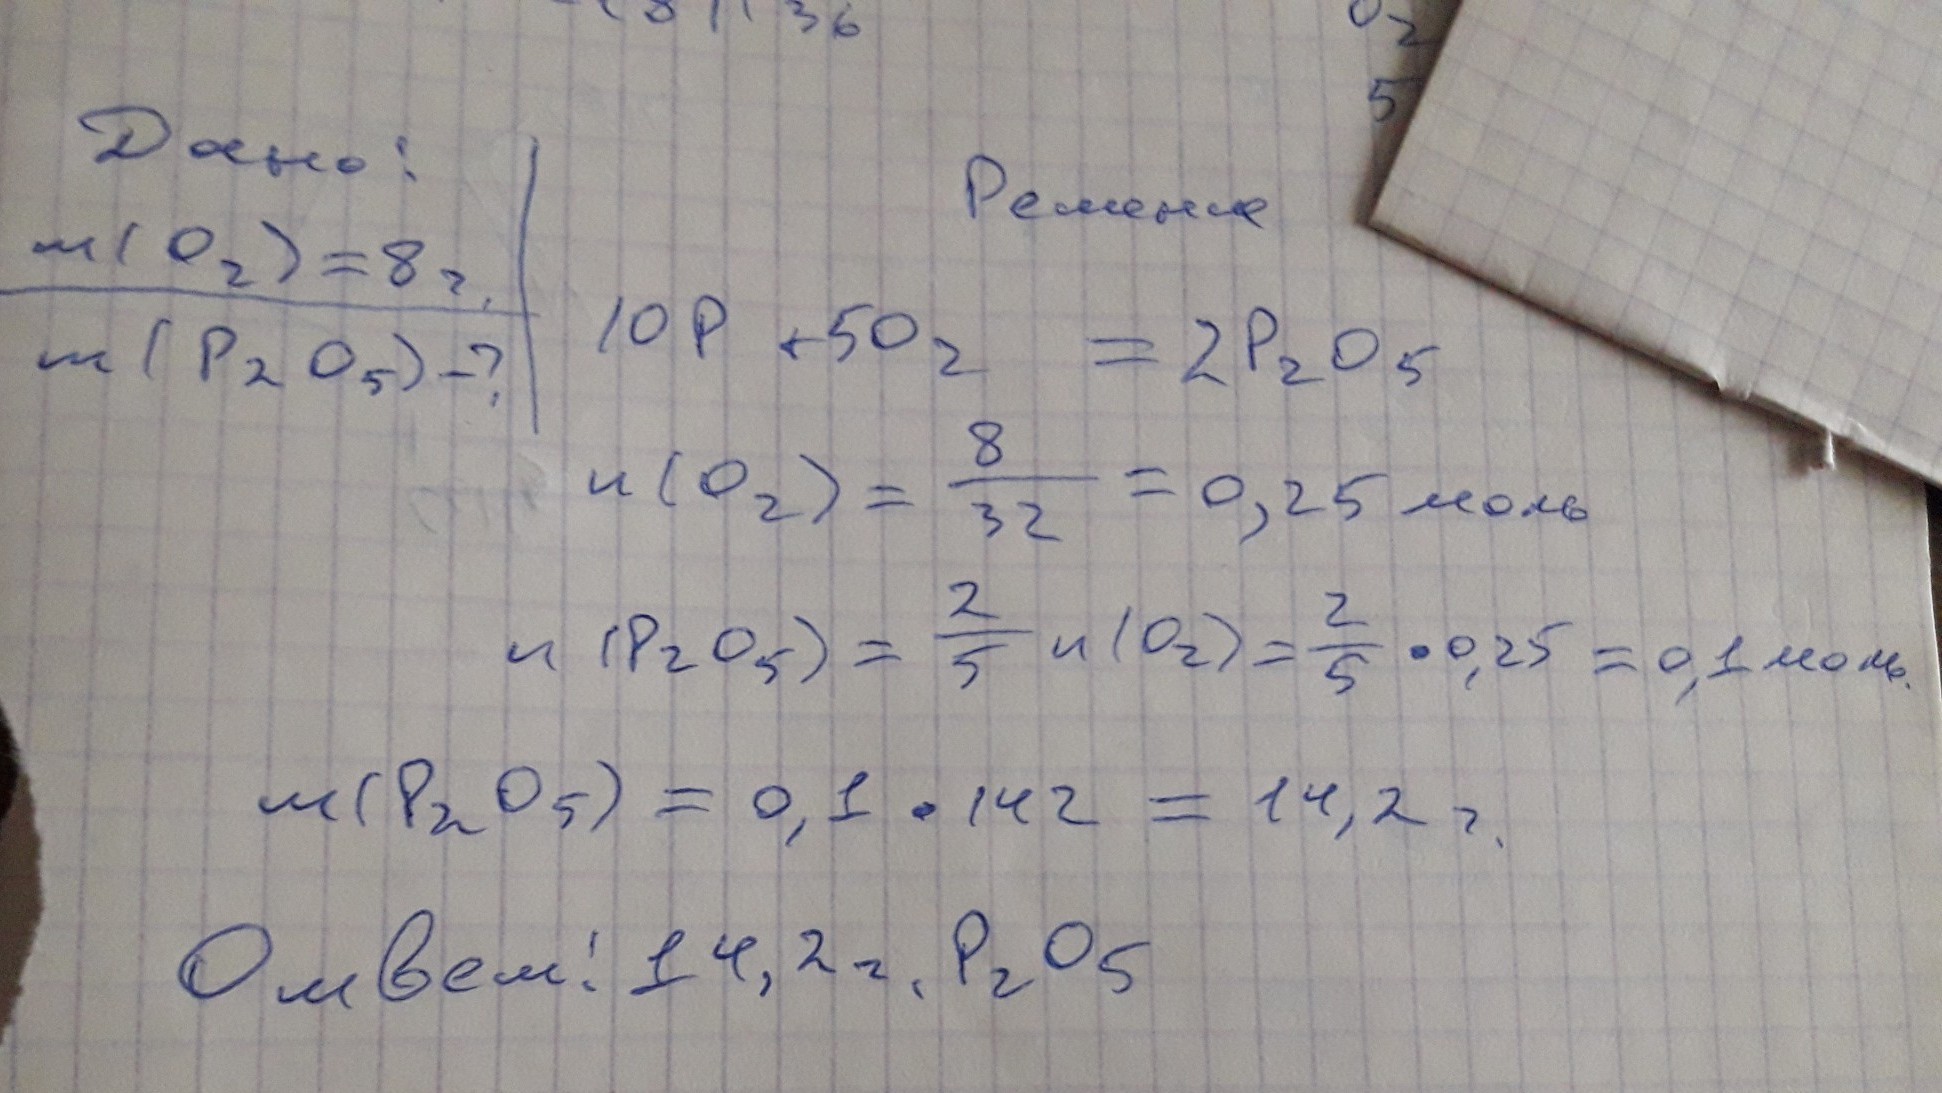 36
O₂
5
Дано:
m(O₂)=8г.
m(P₂O₅)-?
Решение
10P+5O₂ =2P₂O₅
n(O₂)=8/32=0,25моль
n(P₂O₅)=2/5 n(O₂)=2/5•0,25=0,1моль.
m(P₂O₅)=0,1•142=14,2г.
Ответ: 14,2г. P₂O₅